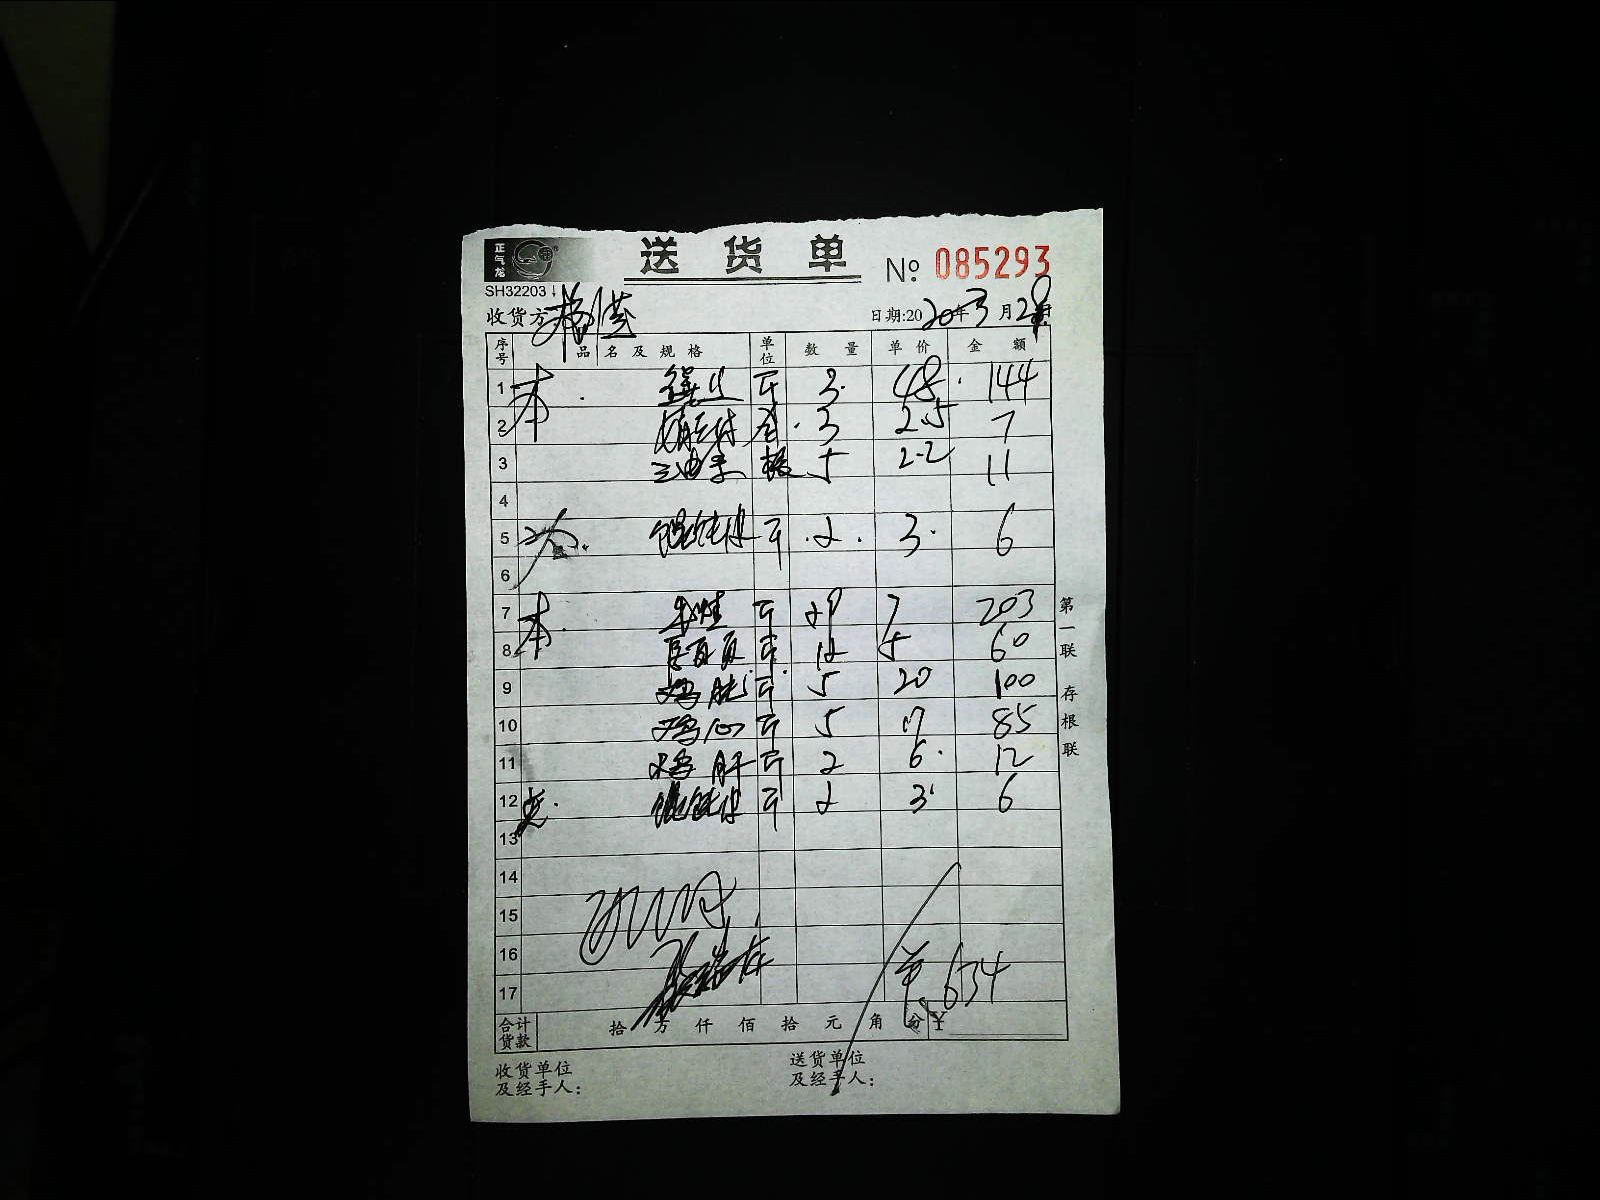 正气龙
送货单 № 085293
SH32203
收货方 日期:2020年3月28日
序号 品名及规格 单位 数量 单价 金额
1 本 斤 3 48 144
2 3 2.5 7
3 三油条 根 5 2.2 11
4
5 馄饨皮 斤 2 3 6
6
7 本 斤 29 7 203
8 斤 12 5 60
9 鸡肫 斤 5 20 100
10 鸡心 斤 5 17 85
11 鸡肝 斤 2 6 12
12 馄饨皮 斤 2 3 6
13
14
15
16
17 634
合计货款 拾 万 仟 佰 拾 元 角 分 ¥
收货单位及经手人:
送货单位及经手人:
第一联 存根联